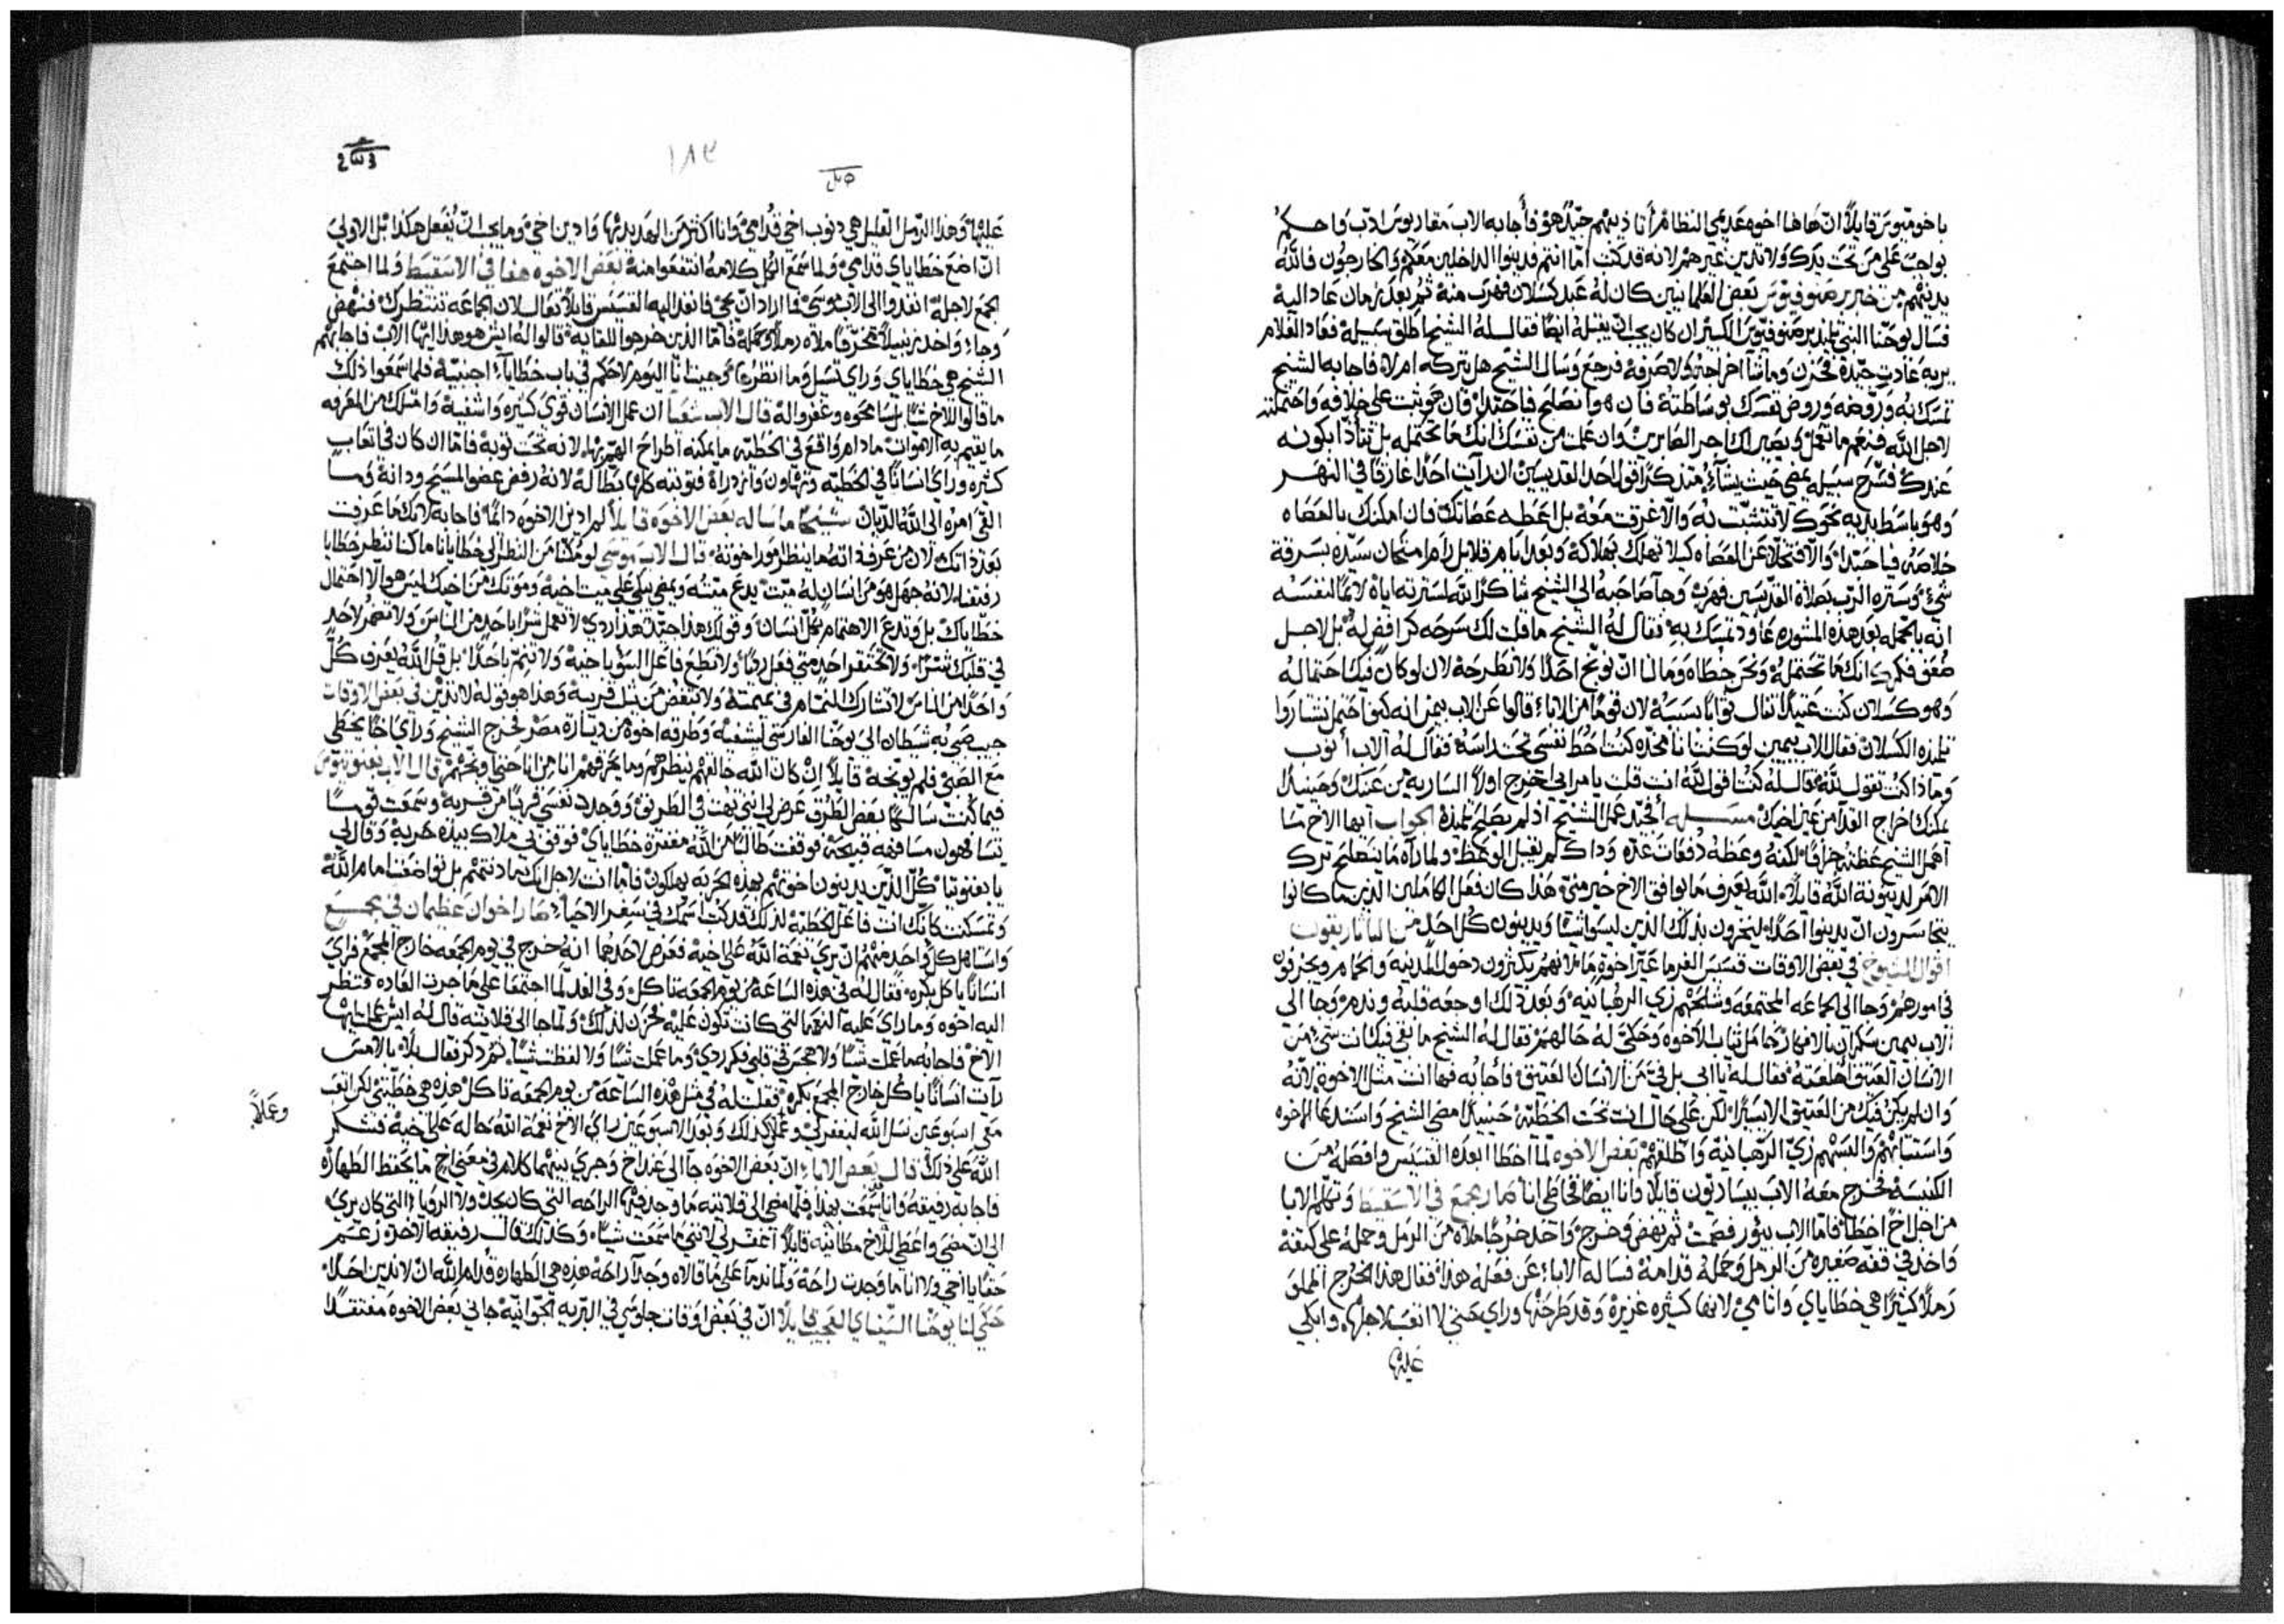 يا خومقيوس قايلاً ان هاهنا اخوه عديمي النظام أنا ذينهم جيّدٌ هو فأجابه الاب مقاريوس ادّب واحكم
بواجب على من تحت يدك ولا تدين غيرهم لانه قد كتب اما انتم فدينوا الداخلين معكم والخارجون فالله
يدينهم من خبر بعض العلمانيين كان له عبد كسلان فهرب منه ثم بعد زمان عاد اليه
فسال يوحنا النبي تلميذ الكبير ان كان يجب ان يقبله ايضًا فقال له الشيخ اطلق سبيله فعاد الغلام
فرجع وسال الشيخ هل يتركه ام لا فاجابه الشيخ
تمسك به وروضه وروض نفسك بوساطته فان هو انصلح فاحتمله وان هو ثبت على خلافه واحتملته
لاجل الله فنعم ما تعمل ويصير لك اجر الصابرين وان علمت من نفسك انك ما تحتمله بل تتأذا بكونه
عندك فسرّح سبيله يمضي حيث يشاء متذكرًا قول احد القديسين ان رايت احدًا غارقًا في النهر
وهو باسط يديه نحوك لا تتشبّث به والا غرقت معه بل اعطه عصاتك فان امكنك بالعصاه
خلاصه فياحبذا والا فتخلا عن العصاه كيلا تهلك بهلاكه وبعد ايام قلايل رام امتحان سيده بسرقة
شيء وستره الرب بصلاة القديسين فهرب وجا صاحبه الى الشيخ شاكرًا لله لسترته اياه لائمًا لنفسه
انه بالجمله بعد هذه المشوره عاود تمسك به فقال له الشيخ ما قلت لك سرحه كرافض له بل لاجل
ضعف فكرك انك ما تحتمله وما لنا ان نوبخ احدًا ولا نطرحه لان لو كان فيك احتمال له
وهو كسلان كنت تنال ثوابًا بسببه لان قومًا من الاباء قالوا عن الاب بيمن انه كيف احتمل
تلميذه الكسلان فقال الاب بيمين لو كنت انا مخدّه كنت احط نفسي تحت راسه فقال له الاب أنوب
وماذا كنت تقول لله فقال له كنت اقول لله انت قلت يا مرايي اخرج اولاً الساريه من عينك وحينيذ
يمكنك اخراج القذا من عين اخيك مسله أيحمد عمل الشيخ اذ لم يصلح تلميذه الجواب ايها الاخ ما
اهمل الشيخ عظته جزافًا لكنه وعظه دفعات عده وذاك لم يقبل الوعظ ولما راه ما ينصلح ترك
الامر لدينونة الله قايلاً الله يعرف ما يوافق الاخ خير مني هذا كان فعل الكاملين الذين ما كانوا
يتجاسرون ان يدينوا احدًا ليخزون بذلك الذين ليسوا شيًّا ويدينون كل احد من
اقوال الشيوخ في بعض الاوقات قسيس الفرما عيّر اخوة ما لانهم يكثرون دخول المدينه والحمام ويحزقون
في امورهم وجا الى الجماعه المجتمعه وشلحهم زي الرهبانيه وبعد ذلك اوجعه قلبه وندم وجا الى
الاب بيمين سكران بالافكار حامل ثياب الاخوه وحكى له حالهم فقال له الشيخ ما بقي فيك انت شيء من
الانسان العتيق أخلعته فقال له يا ابي بل في من الانسان العتيق فأجابه فها انت مثل الاخوة لانه
وان لم يكن فيك من العتيق الا يسيرًا لكن على حال انت تحت الخطيّه حينيذ مضى الشيخ واستدعا الاخوه
والبسهم زيّ الرهبانية واطلقهم بعض الاخوه لما اخطا ابعده القسيس وافصله من
الكنيسه فخرج معه الاب بيساريون قايلاً وانا ايضًا خاطي انا صار مجمع في الاسقيط وتكلم الابا
من اجل اخ اخطا فاما الاب بيور فصمت ثم نهض وخرج واخذ خرجًا ملاه من الرمل وحمله على كتفه
واخذ في قفه صغيره من الرمل وحمله قدامه فساله الاباء عن فعله هذا فقال هذا الخرج المملو
رملاً كثيرًا هي خطاياي وانها كثيره غزيرة وقد طرحتها وراي حتى لا اتعب لاجلها وابكي
عليها
١٨٣
عليها وهذا الرمل القليل هي ذنوب اخي قدامي وانا اكثر من الهديد بها وادين اخي وما يجب ان يُفعل هكذا بل الاولى
ان اضع خطاياي قدامي ولما سمع الكل كلامه انتفعوا منه بعض الاخوه هفا في الاسقيط ولما اجتمع
الجمع لاجله انفدوا الى الاب موسى فما اراد ان يجي فانفد اليه القسيس قايلاً تعال لان الجماعه تنتظرك فنهض
وجاء واخذ زنبيلاً مخرّقًا ملاه رملاً وحمله فاما الذين خرجوا للقايه قالوا له ايش هو هذا ايها الاب فاجابهم
الشيخ هي خطاياي وراي تسيل وما انظرها وجيت انا اليوم لاحكم في باب خطايا اجنبيّة فلما سمعوا ذلك
ما قالوا للاخ شيًّا بل سامحوه وغفروا له قال الاب اشعيا ان عمل الانسان قوى كثيره واشفية وامتلك من المعرفه
ما يقيم به الاموات ما دام واقع في الخطيّه ما يمكنه اطراح الهمّ بها لانه تحت توبة فاما ان كان في اتعاب
كثيره وراى انسانًا في الخطيّه وتهاون وازدراه فتوبته كلها بطّاله لانه رفض عضو المسيح ودانه وما
القى امره الى الله الديان شيخًا ما ساله بعض الاخوة قايلاً لم ادين الاخوه دايمًا فاجابه لانك ما عرفت
بعد ذاتك لان من عرف ذاته ما ينظر امور اخوته قال الاب موسى لو مُكّنّا من النظر الى خطايانا ما كنا ننظر خطايا
رفيقنا لانه جهل هو من انسان له ميّت يدع ميته ويمضي يبكي على ميت اخيه وموتك من اخيك ليس هو الا احتمال
خطاياك بل وتدع الاهتمام بكل انسان وقولك هذا جيد هذا ردي لا تعمل شرًّا باحد من الناس ولا تضمر لاحد
في قلبك شرًّا ولا تحتقر احد متى فعل رديًّا ولا تطع فاعل السؤ باخيه ولا تنمّ باحدًا بل قل الله يعرف كلّ
واحدًا من الناس لا تشارك النمام في نميمته ولا تبغض من يثلب قريبه وهذا هو قوله لا تدين في بعض الاوقات
جيب صبي به شيطان الى يوحنا الفارسي ليشفيه وطرقه اخوة من ديارة مصر فخرج الشيخ وراى اخًا يخطي
مع الصبي فلم يوبخه قايلاً ان كان الله خالقهم ينظرهم وما يحرقهم انا من انا حتى اوبّخهم قال الاب بفنوتيوس
فيما كنت سالكًا بعض الطرق عرض لي انني تهت في الطريق ووجدت نفسي قريبًا من قرية وسمعت قومًا
فوقفت طالبًا من الله مغفرة خطاياي فوقف بي ملاك بيده حربة وقال لي
يا بفنوتيا كلّ الذين يدينون اخوتهم بهذه الحربه يهلكون فاما انت لاجل انك ما دنتهم بل تواضعت امام الله
وتمسكنت كانك انت فاعل الخطيّه لذلك قد كتب اسمك في سفر الاحياء صارا خوان عظيمان في مجمع
واستاهل كل واحد منهم ان يري نعمة الله على اخيه فعرض لاحدهما انه خرج في يوم الجمعه خارج المجمع فراى
انسانًا ياكل بكره فقال له في هذه الساعه من يوم الجمعه تاكل وفي الغد لما اجتمعا على ما جرت العاده فنظر
اليه اخوه وما راى عليه النعمه التي كانت تكون عليه فحزن لذلك ولما جا الى قلايته قال له ايش عملت يا ايها
الاخ فاجابه ما عملت شيًّا ولا هجس في قلبي فكر ردي وما عملت شيًّا ولا لفظت شيًّا ثم ذكر فقال بلا بالامس
رايت انسانًا ياكل خارج المجمع بكره فقلت له في مثل هذه الساعة من يوم الجمعه تاكل هذه هي خطيّتي لكن اتعب
معي اسبوعين نسل الله ليغفر لي وعملا كذلك وبعد الاسبوعين راى الاخ نعمة الله حاله على اخيه فشكر
وعملاً
الله على ذلك قال بعض الابا ان بعض الاخوه جا الى عند اخ وجرى بينهما كلام في معنى اخ ما يحفظ الطهارة
فاجابه رفيقه وانا سمعت بهذا فلما مضى الى قلايته ما وجد فيها الراحه التي كان يجد ولا الرويا التي كان يرى
الى ان مضى واعطى للاخ مطانيه قايلاً اغفر لي لانني ما سمعت شيًّا وكذلك قال رفيقه الاخر
حقًّا يا اخي ولا انا ما وجدت راحة ولما ندما على ما قالاه وجدا راحة هذه هي الطهاره قدام الله ان لا ندين احدًا
حكى لنا يوحنا السيناي العجيب قايلاً ان في بعض اوقات جلوسي في البريه الجوانيّه جاني بعض الاخوه مفتقدًا